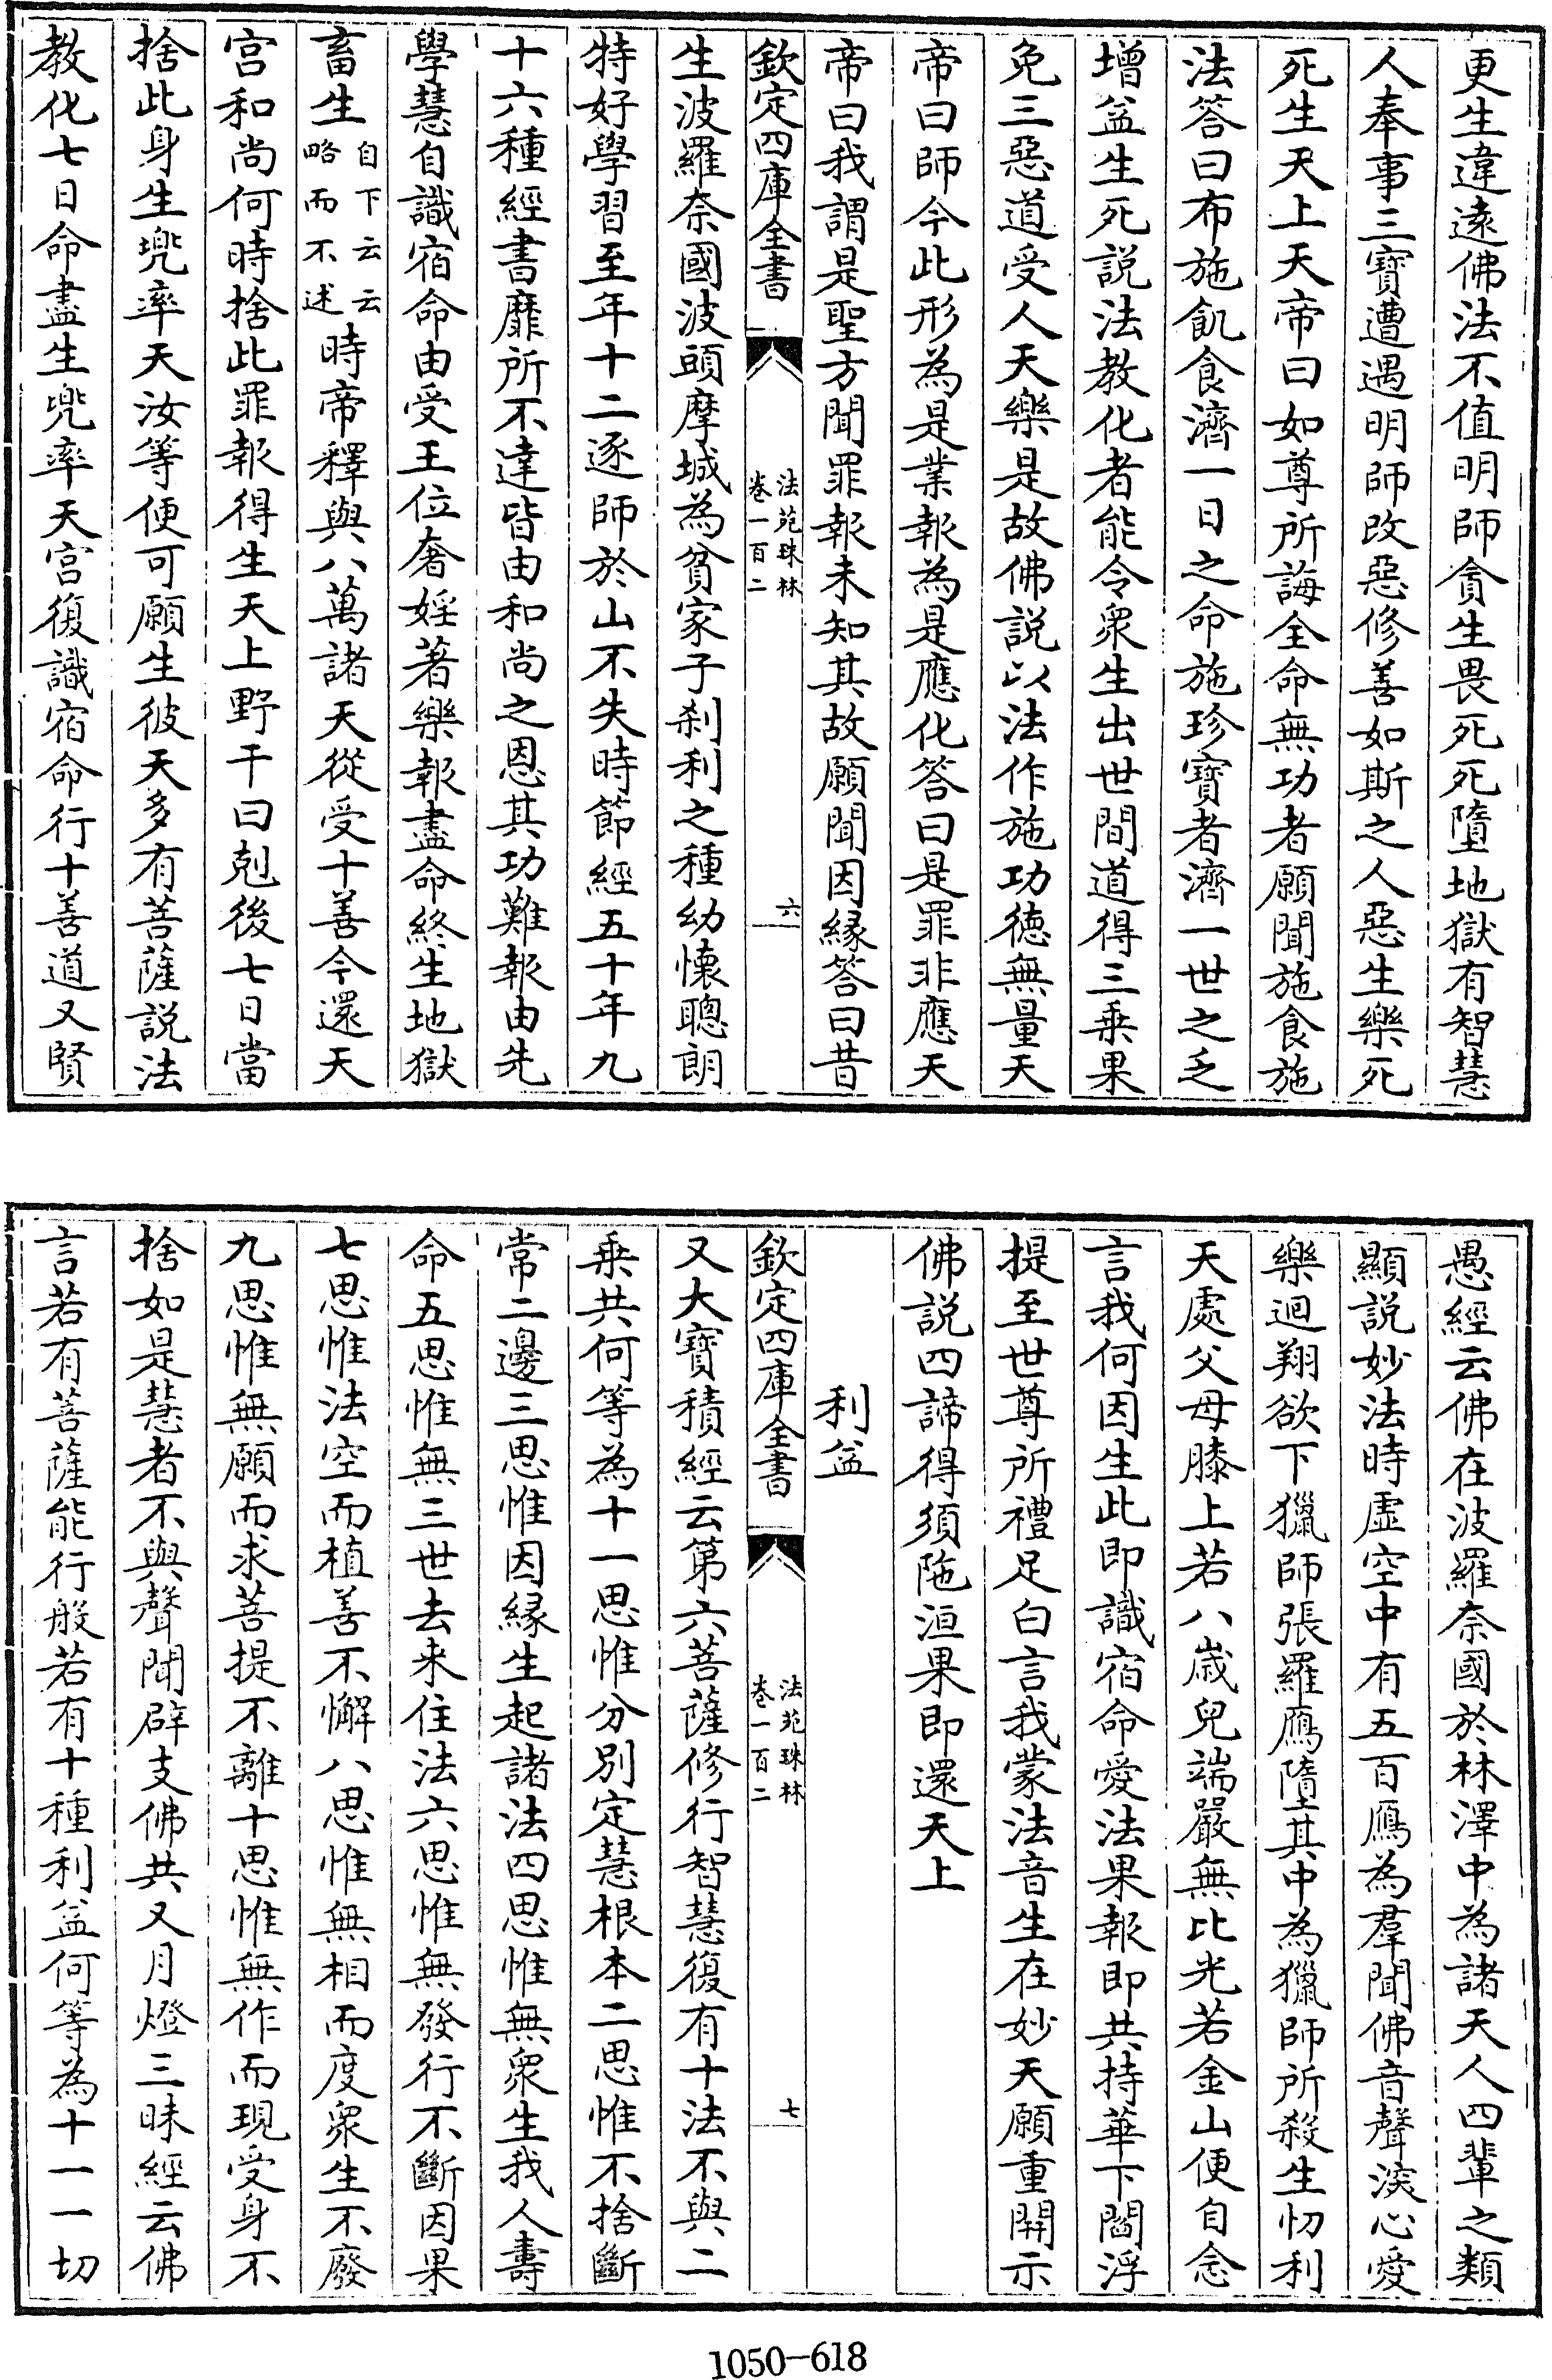 更生違遠佛法不值明師貪生畏死死墮地獄有智慧
人奉事三寶遭遇明師改惡修善如斯之人惡生樂死
死生天上天帝曰如尊所誨全命無功者願聞施食施
法答曰布施飢食濟一日之命施珍寶者濟一世之乏
增益生死説法教化者能令衆生出世間道得三乗果
免三惡道受人天樂是故佛説以法作施功徳無量天
帝曰師今此形為是業報為是應化答曰是罪非應天
帝曰我謂是聖方聞罪報未知其故願聞因縁答曰昔
欽定四庫全書
法苑珠林
卷一百二
六
生波羅奈國波頭摩城為貧家子刹利之種幼懷聰朗
特好學習至年十二逐師於山不失時節經五十年九
十六種經書靡所不達皆由和尚之恩其功難報由先
學慧自識宿命由受王位奢婬著樂報盡命終生地獄
畜生自下云云略而不述時帝釋與八萬諸天從受十善今還天
宫和尚何時捨此罪報得生天上野干曰剋後七日當
捨此身生兠率天汝等便可願生彼天多有菩薩説法
教化七日命盡生兠率天宫復識宿命行十善道又賢
愚經云佛在波羅奈國於林澤中為諸天人四輩之類
顯説妙法時虚空中有五百鴈為羣聞佛音聲深心愛
樂迴翔欲下獵師張羅鴈墮其中為獵師所殺生忉利
天處父母膝上若八歳兒端嚴無比光若金山便自念
言我何因生此即識宿命愛法果報即共持華下閻浮
提至世尊所禮足白言我蒙法音生在妙天願重開示
佛説四諦得須陁洹果即還天上
利益
欽定四庫全書
法苑珠林
卷一百二
七
又大寶積經云第六菩薩修行智慧復有十法不與二
乗共何等為十一思惟分別定慧根本二思惟不捨斷
常二邊三思惟因縁生起諸法四思惟無衆生我人壽
命五思惟無三世去来住法六思惟無發行不斷因果
七思惟法空而植善不懈八思惟無相而度衆生不廢
九思惟無願而求菩提不離十思惟無作而現受身不
捨如是慧者不與聲聞辟支佛共又月燈三昧經云佛
言若有菩薩能行般若有十種利益何等為十一一切
1050-618